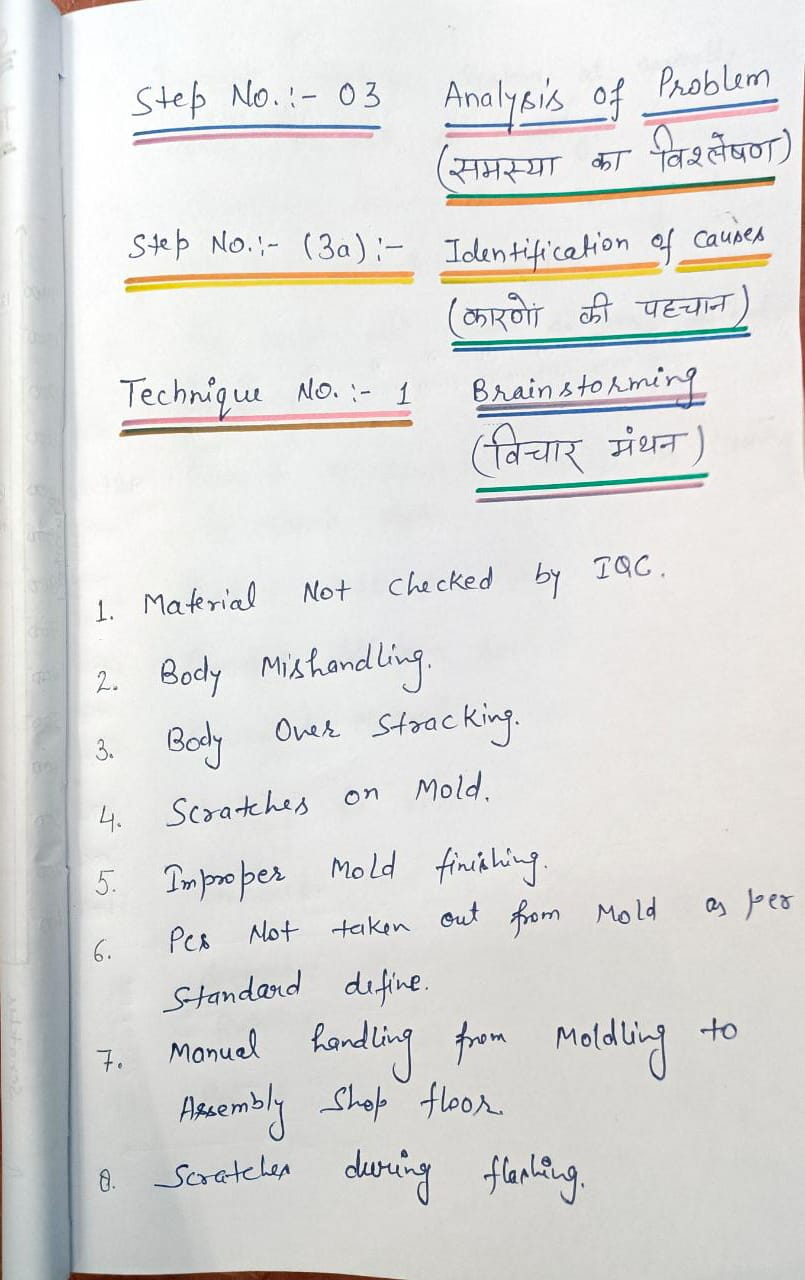 Step No. :- 03 Analysis of Problem
(समस्या का विश्लेषण)
Step No. :- (3a) :- Identification of causes
(कारणों की पहचान)
Technique No. :- 1 Brainstorming
(विचार मंथन)
1. Material Not checked by IQC.
2. Body Mishandling.
3. Body Over Stracking.
4. Scratches on Mold.
5. Improper Mold finishing.
6. Pcs Not taken out from Mold as per
Standard define.
7. Manual handling from Moldling to
Assembly Shop floor.
8. Scratches during flashing.